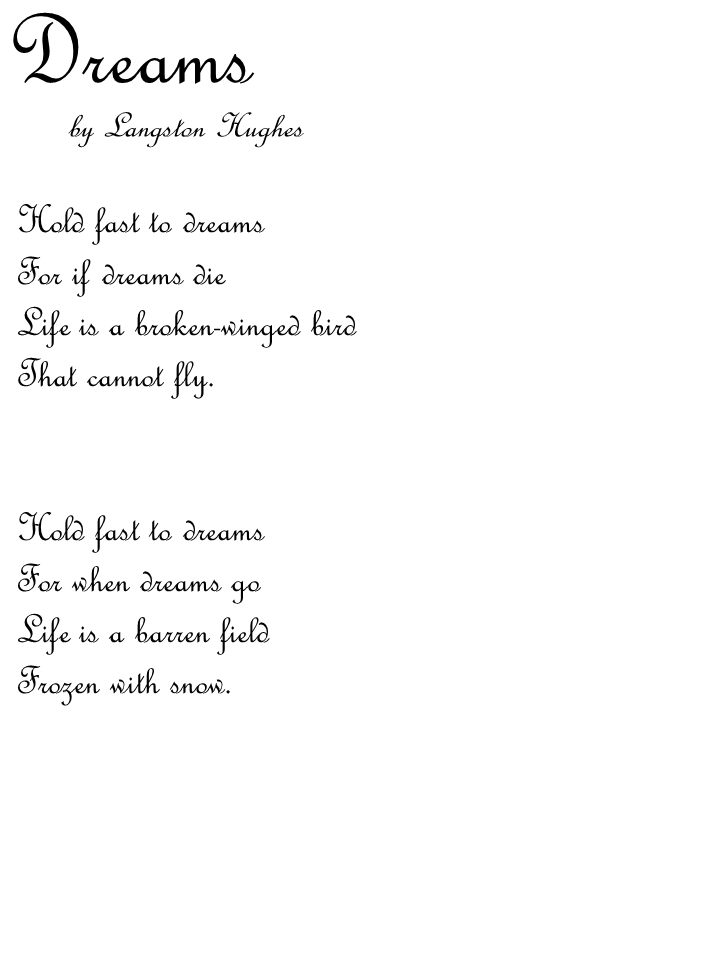 Dreams
by Langston Hughes
Hold fast to dreams
For if dreams die
Life is a broken-winged bird
That cannot fly.
Hold fast to dreams
For when dreams go
Life is a barren field
Frozen with snow.